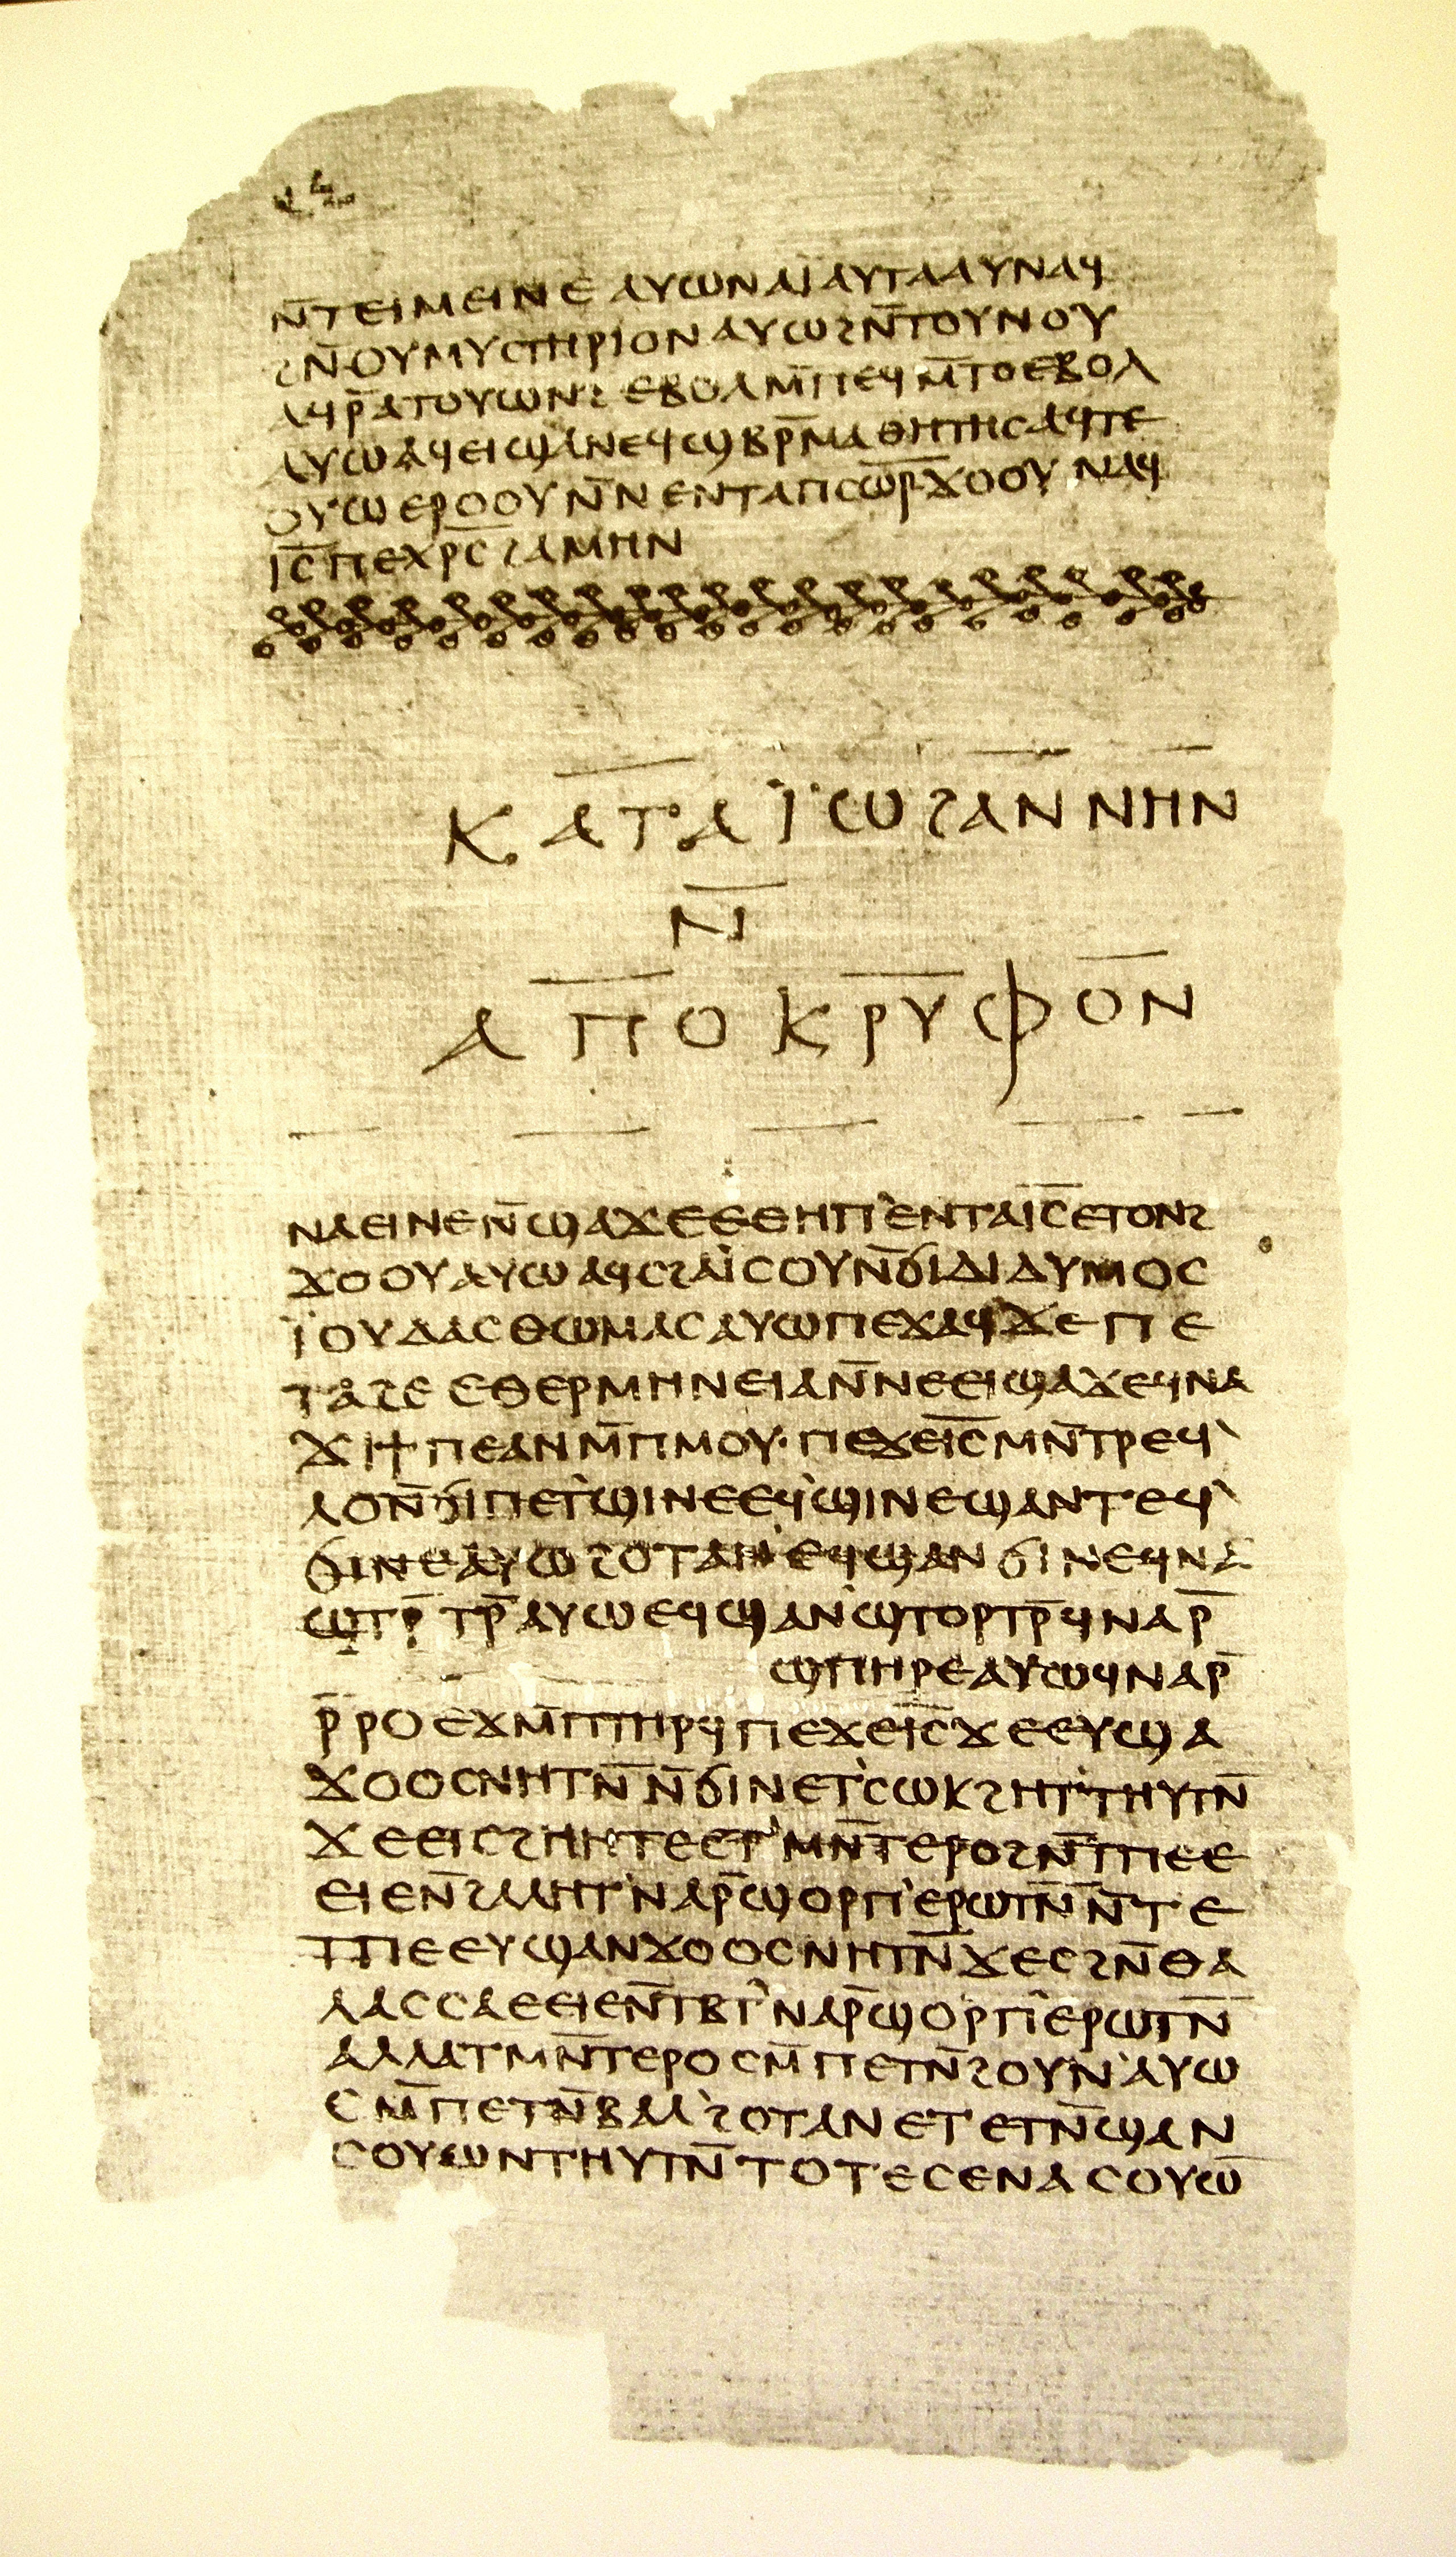 ⲛ̄ⲧⲉⲓⲙⲉⲓⲛⲉ ⲁⲩⲱ ⲛⲁⲓ̈ ⲁⲩⲧⲁⲁⲩ ⲛⲁϥ
ϩⲛ̄ ⲟⲩⲙⲩⲥⲧⲏⲣⲓⲟⲛ ⲁⲩⲱ ϩⲛ̄ ⲧⲟⲩⲛⲟⲩ
ⲁϥⲣ̄ ⲁⲧⲟⲩⲱⲛϩ ⲉⲃⲟⲗ ⲙ̄ⲡⲉϥⲙ̄ⲧⲟ ⲉⲃⲟⲗ
ⲁⲩⲱ ⲁϥⲉⲓ ϣⲁ ⲛⲉϥϣⲃⲣ̄ⲙⲁⲑⲏⲧⲏⲥ ⲁϥⲧⲉ
ⲟⲩⲱ ⲉⲣⲟⲟⲩ ⲛ̄ⲛⲉⲛⲧⲁ ⲡⲥⲱ̄ⲣ̄ ϫⲟⲟⲩ ⲛⲁϥ
ⲓ̄ⲥ̄ ⲡⲉⲭⲣ̄ⲥ̄ ϩⲁⲙⲏⲛ
ⲕⲁⲧⲁ ⲓ̈ⲱϩⲁⲛⲛⲏⲛ
ⲛ̄
ⲁⲡⲟⲕⲣⲩⲫⲟⲛ
ⲛⲁⲉⲓ ⲛⲉ ⲛ̄ϣⲁϫⲉ ⲉⲑⲏⲡ' ⲉⲛⲧⲁ ⲓ̄ⲥ̄ ⲉⲧⲟⲛϩ
ϫⲟⲟⲩ ⲁⲩⲱ ⲁϥⲥϩⲁⲓ̈ⲥⲟⲩ ⲛ̄ϭⲓ ⲇⲓⲇⲩⲙⲟⲥ
ⲓ̈ⲟⲩⲇⲁⲥ ⲑⲱⲙⲁⲥ ⲁⲩⲱ ⲡⲉϫⲁϥ ϫⲉ ⲡⲉ
ⲧⲁϩⲉ ⲉⲑⲉⲣⲙⲏⲛⲉⲓⲁ ⲛ̄ⲛⲉⲉⲓϣⲁϫⲉ ϥⲛⲁ
ϫⲓ ϯⲡⲉ ⲁⲛ ⲙ̄ⲡⲙⲟⲩ· ⲡⲉϫⲉ ⲓ̄ⲥ̄ ⲙⲛ̄ⲧⲣⲉϥ'
ⲗⲟ ⲛ̄ϭⲓ ⲡⲉⲧ'ϣⲓⲛⲉ ⲉϥ'ϣⲓⲛⲉ ϣⲁⲛⲧⲉϥ'
ϭⲓⲛⲉ ⲁⲩⲱ ϩⲟⲧⲁⲛ' ⲉϥϣⲁⲛϭⲓⲛⲉ ϥⲛⲁ
ϣⲧⲣ̄ⲧⲣ̄ ⲁⲩⲱ ⲉϥϣⲁⲛ'ϣⲧⲟⲣⲧⲣ̄ ϥⲛⲁⲣ̄
ϣⲡⲏⲣⲉ ⲁⲩⲱ ϥⲛⲁⲣ̄
ⲣ̄ⲣⲟ ⲉϫⲙ̄ ⲡⲧⲏⲣϥ ⲡⲉϫⲉ ⲓ̄ⲥ̄ ϫⲉ ⲉⲩϣⲁ
ϫⲟⲟⲥ ⲛⲏⲧⲛ̄ ⲛ̄ϭⲓ ⲛⲉⲧ'ⲥⲱⲕ ϩⲏⲧ' ⲧⲏⲩⲧⲛ̄
ϫⲉ ⲉⲓⲥϩⲏⲏⲧⲉ ⲉⲧ'ⲙⲛ̄ⲧⲉⲣⲟ ϩⲛ̄ ⲧⲡⲉ ⲉ
ⲉⲓⲉ ⲛ̄ϩⲁⲗⲏⲧ' ⲛⲁⲣ̄ ϣⲟⲣⲡ' ⲉⲣⲱⲧⲛ̄ ⲛ̄ⲧⲉ
ⲧⲡⲉ ⲉⲩϣⲁⲛϫⲟⲟⲥ ⲛⲏⲧⲛ̄ ϫⲉ ⲥϩⲛ̄ ⲑⲁ
ⲗⲁⲥⲥⲁ ⲉⲉⲓⲉ ⲛ̄ⲧⲃⲧ' ⲛⲁⲣ̄ ϣⲟⲣⲡ' ⲉⲣⲱⲧⲛ̄
ⲁⲗⲗⲁ ⲧⲙⲛ̄ⲧⲉⲣⲟ ⲥⲙ̄ⲡⲉⲧⲛ̄ϩⲟⲩⲛ' ⲁⲩⲱ
ⲥⲙ̄ⲡⲉⲧⲛ̄ⲃⲁⲗ' ϩⲟⲧⲁⲛ ⲉⲧⲉⲧⲛ̄ϣⲁⲛ
ⲥⲟⲩⲱⲛ ⲧⲏⲩⲧⲛ̄ ⲧⲟⲧⲉ ⲥⲉⲛⲁⲥⲟⲩⲱ̄